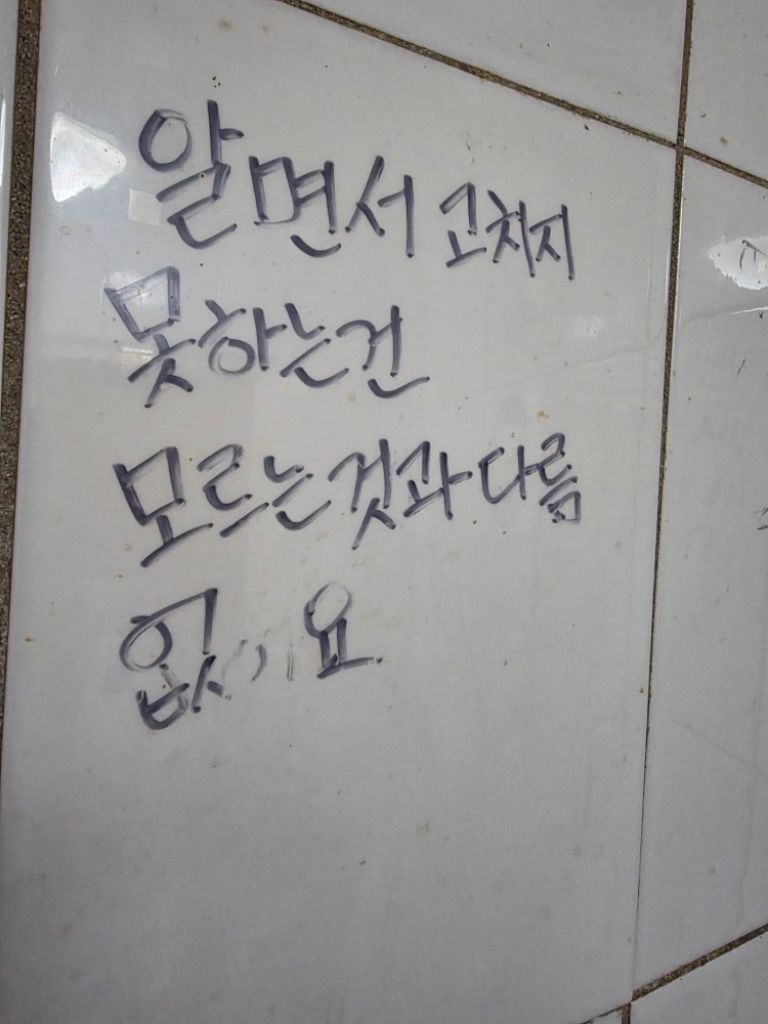 알면서 고치지
못하는건
모르는것과 다름
없어요